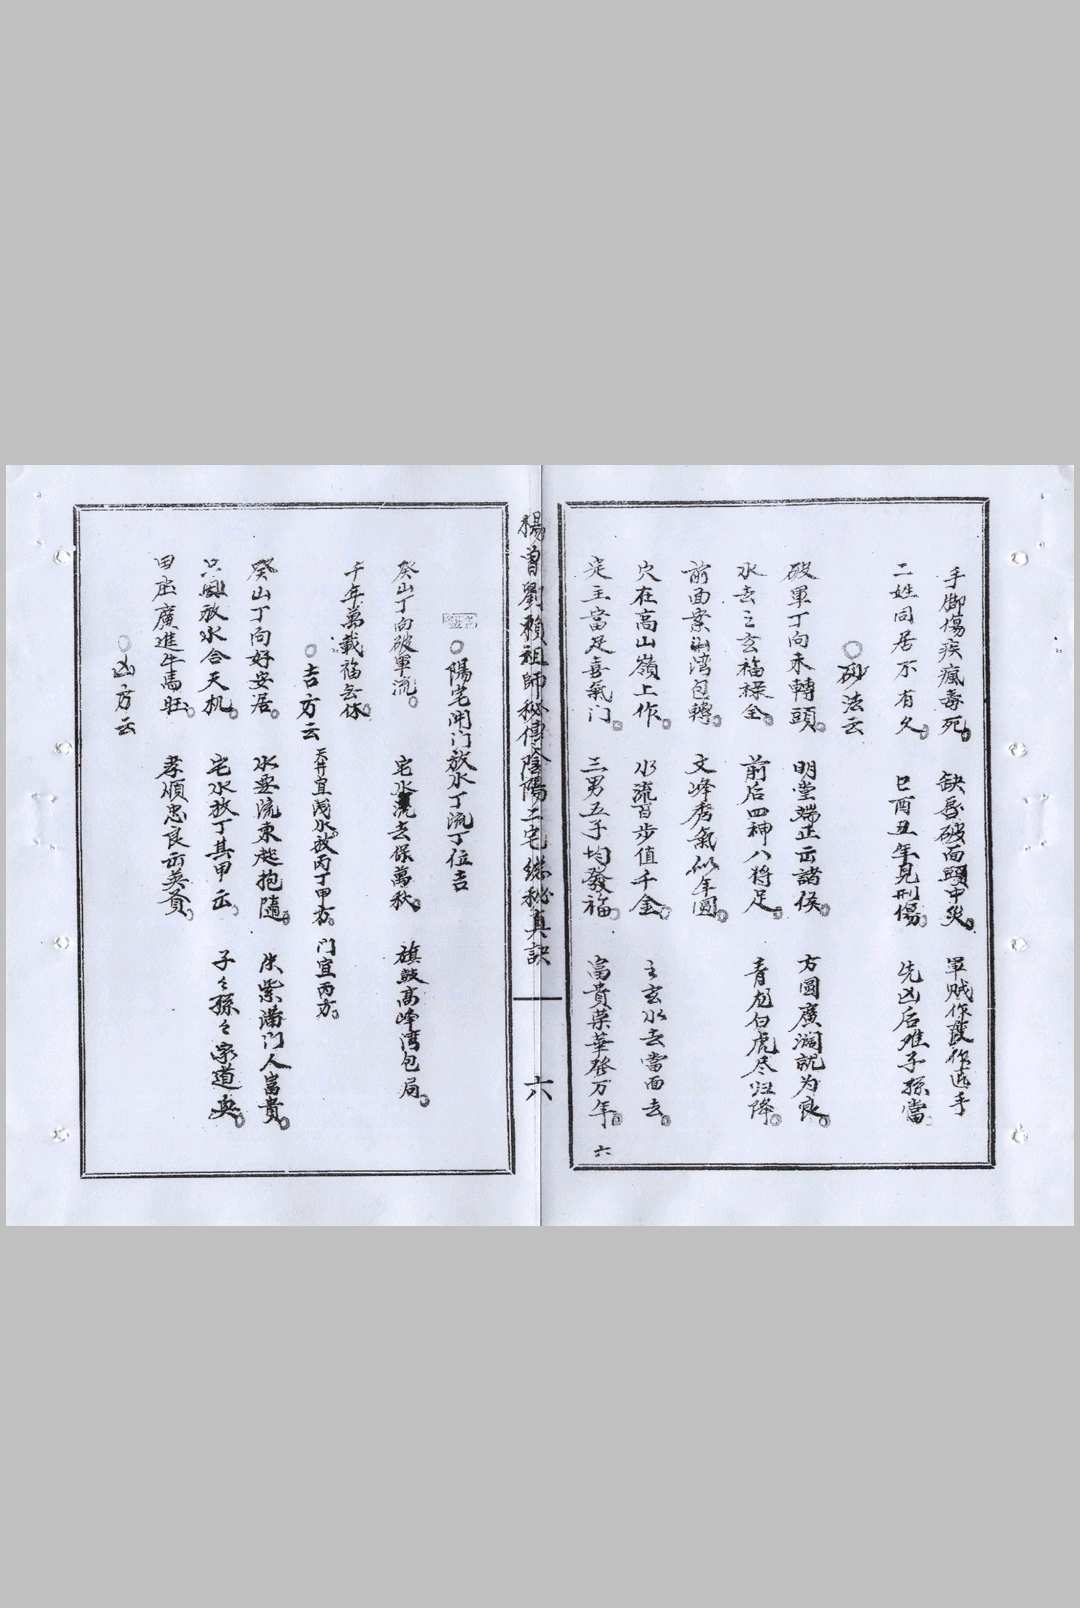 手脚傷疾瘋毒死 缺唇破面頭中災 軍賊作度作近手
二姓同居不有久 巳酉丑年見刑傷 先凶后难子孫當
砂法云
破軍丁向未轉頭 明堂端正出諸侯 方圓廣濶說为良
水去之玄福祿全 前后四神八将足 青龙白虎尽归降
前面案山湾包轉 文峰秀氣似年圓
穴在高山嶺上作 水流百步值千金 之玄水去當面去
定主當足喜氣门 三男五子均發福 富貴荣華發万年
六
楊曾劉賴祖師秘傳陰陽二宅総秘真訣
六
陽宅開门放水丁流丁位吉
癸山丁向破軍流 宅水流去保萬秋 旗鼓高峰湾包局
千年萬載福不休
吉方云 天井宜浅水放丙丁甲方 门宜丙方
癸山丁向好安居 水要流東旋抱隨 朱紫滿门人富貴
只圖放水合天机 宅水放丁其甲云 子々孫々家道興
田庄廣進牛馬旺 孝順忠良出英賢
凶方云